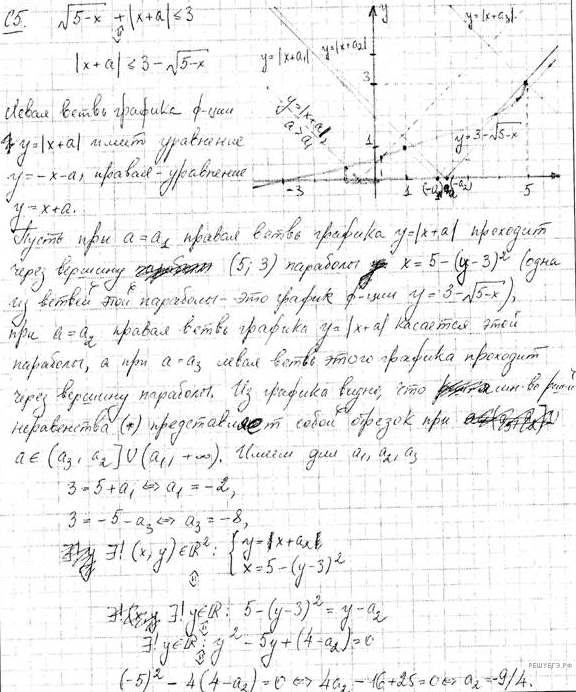 С5. √5-x + |x+a| ≤ 3
|x+a| ≤ 3-√5-x
Левая ветвь графика ф-ции
y=|x+a| имеет уравнение
y=-x-a, правая - уравнение
y=x+a.
y
y=|x+a₁|
y=|x+a₂|
y=|x+a₃|
y=|x+a|,
a>a₁
3
1
y=3-√5-x
-3
1
(-a₂)
5
x
Пусть при a=a₁ правая ветвь графика y=|x+a| проходит
через вершину (5; 3) параболы x=5-(y-3)² (одна
из ветвей этой параболы - это график ф-ции y=3-√5-x),
при a=a₂ правая ветвь графика y=|x+a| касается этой
параболы, а при a=a₃ левая ветвь этого графика проходит
через вершину параболы. Из графика видно, что мн-во реш-й
неравенства (*) представляет собой отрезок при
a∈(a₃, a₂]∪(a₁, +∞). Имеем для a₁, a₂, a₃
3=5+a₁ ⇔ a₁=-2,
3=-5-a₃ ⇔ a₃=-8,
∃! (x,y)∈ℝ²: { y=|x+a₂|
x=5-(y-3)²
∃! y∈ℝ: 5-(y-3)²=y-a₂
∃! y∈ℝ: y²-5y+(4-a₂)=0
(-5)²-4(4-a₂)=0 ⇔ 4a₂-16+25=0 ⇔ a₂=-9/4.
РЕШУЕГЭ.РФ